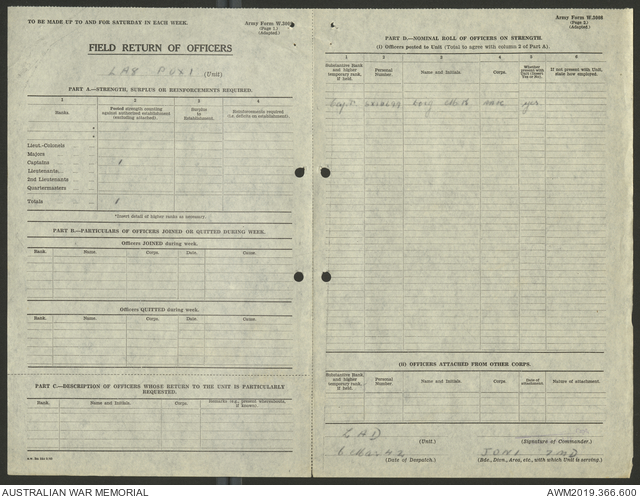 TO BE MADE UP TO AND FOR SATURDAY IN EACH WEEK.
Army Form W.3008
(Page 1.)
(Adapted.)
FIELD RETURN OF OFFICERS
(Unit)
PART A.—STRENGTH, SURPLUS OR REINFORCEMENTS REQUIRED.
1 2 3 4
Ranks. Posted strength counting against authorized establishment (excluding attached). Surplus to Establishment. Reinforcements required (i.e. deficits on establishment).
Lieut.-Colonels
Majors
Captains 1
Lieutenants
2nd Lieutenants
Quartermasters
Totals 1
*Insert detail of higher ranks as necessary.
PART B.—PARTICULARS OF OFFICERS JOINED OR QUITTED DURING WEEK.
Officers JOINED during week.
Rank. Name. Corps. Date. Cause.
Officers QUITTED during week.
Rank. Name. Corps. Date. Cause.
PART C.—DESCRIPTION OF OFFICERS WHOSE RETURN TO THE UNIT IS PARTICULARLY REQUESTED.
Rank. Name and Initials. Corps. Remarks (i.e., present whereabouts, if known).
Army Form W.3008
(Page 2.)
(Adapted.)
PART D.—NOMINAL ROLL OF OFFICERS ON STRENGTH.
(i) Officers posted to Unit (Total to agree with column 2 of Part A).
1 2 3 4 5 6
Substantive Rank and higher temporary rank, if held. Personal Number. Name and Initials. Corps. Whether present with Unit (Insert Yes or No). If not present with Unit, state how employed.
Capt. yes
(ii) OFFICERS ATTACHED FROM OTHER CORPS.
Substantive Rank and higher temporary rank, if held. Personal Number. Name and Initials. Corps. Date of attachment. Nature of attachment.
LAD (Unit.) (Signature of Commander.)
6 Mar 42 (Date of Despatch.) (Bde., Divn., Area, etc., with which Unit is serving.)
AUSTRALIAN WAR MEMORIAL
AWM2019.366.600